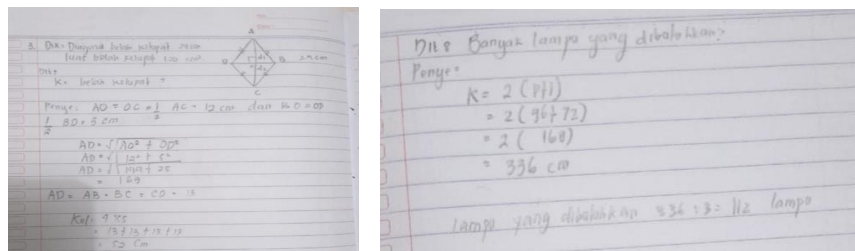 3. Dik = Diagonal belah ketupat 24 cm
luas belah ketupat 120 cm²
A
B
C
D
Dit =
K = belah ketupat ?
Penye. AO = OC = 1/2 AC = 12 cm dan BO = OD
1/2 BD = 5 cm
AD = √AO² + OD²
AD = √12² + 5²
AD = √144 + 25
= 169
AD = AB = BC = CD = 13
Kel = 4 x s
= 13 + 13 + 13 + 13
= 52 cm
Dit : Banyak lampu yang dibutuhkan?
Penye.
K = 2 (p+l)
= 2 (96 + 72)
= 2 ( 168)
= 336 cm
lampu yang dibutuhkan 336 : 3 = 112 lampu